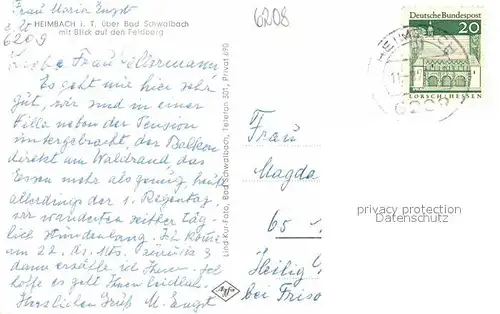 Frau Maria Engst
z. Zt
6209
HEIMBACH i. T. über Bad Schwalbach
mit Blick auf den Feldberg
6208
Liebe Frau
Es geht mir hier sehr
gut, wir sind in einer
Villa neben der Pension
untergebracht, der Balkon
direkt am Waldrand, das
Essen mehr als genug, heute
allerdings der 1. Regentag,
wir wanderten seither täg-
lich stundenlang. Ich komme
am 22. ds. Mts. zurück &
dann erzähle ich Ihnen. Ich
hoffe es geht Ihnen leidlich.
Herzlichen Gruß M. Engst
Lindi-Kur-Foto, Bad Schwalbach, Telefon 301, Privat 690
Agfa
Deutsche Bundespost
20
LORSCH/HESSEN
Frau
Magda
65
Heilig
bei Friso
privacy protection
Datenschutz